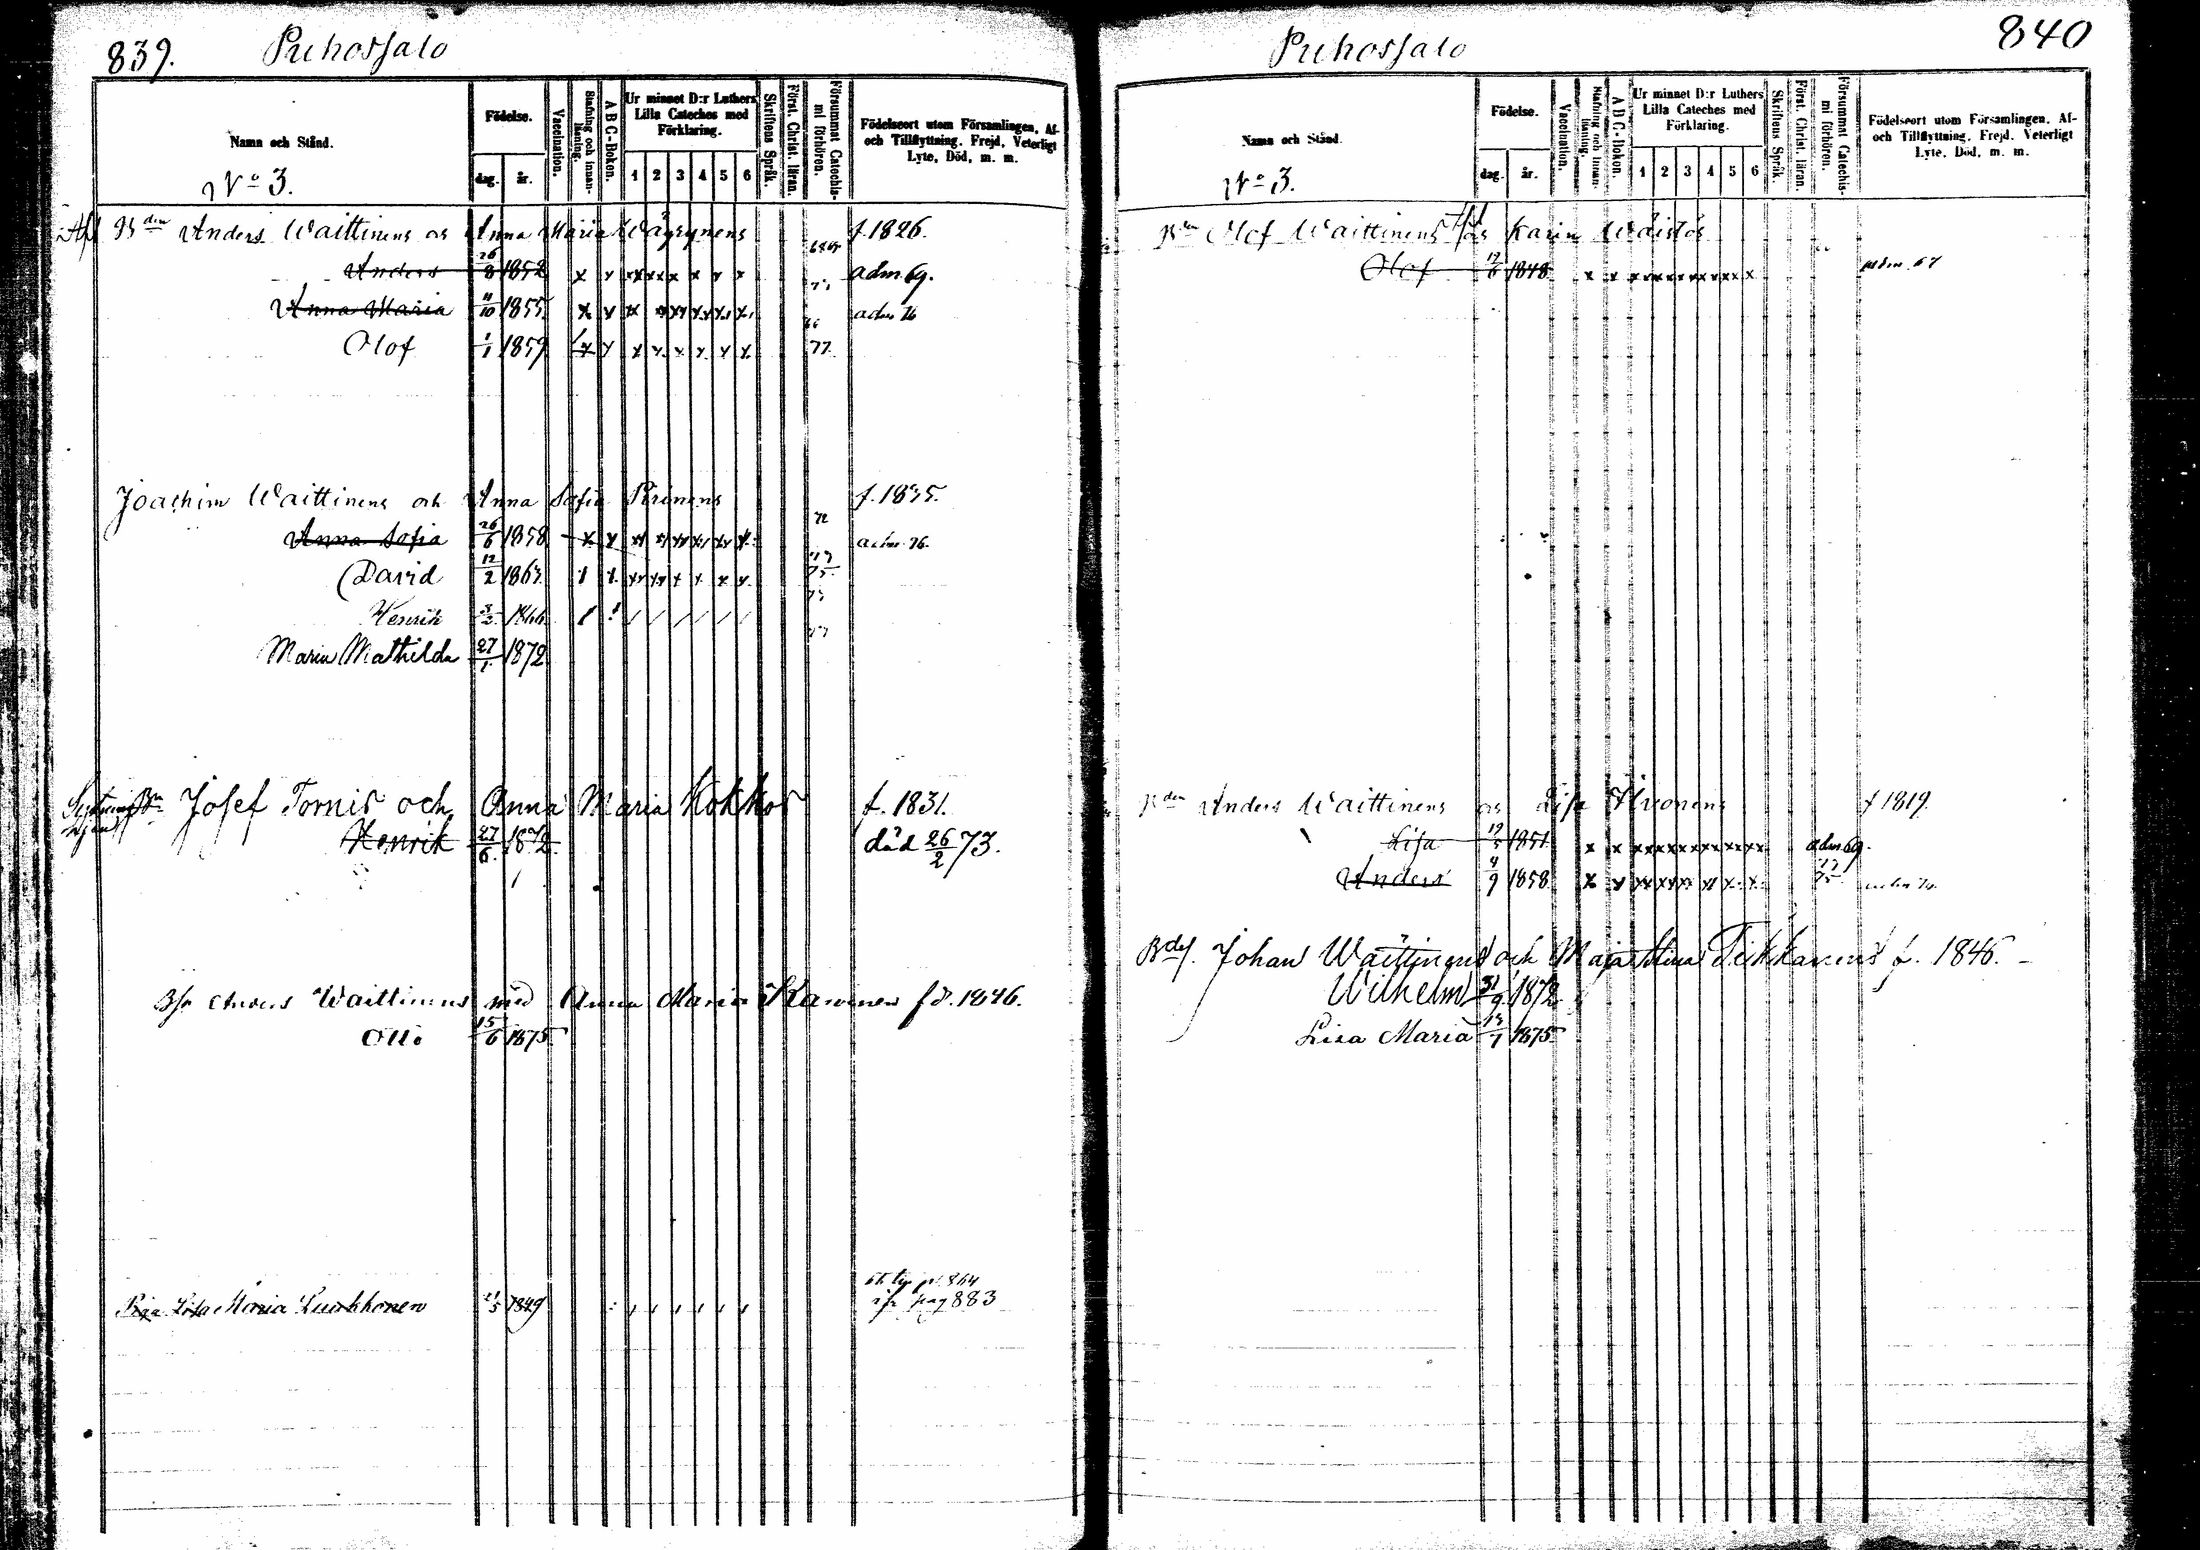 839. Puhossalo
Nama och Stånd.
Födelse.
dag. år.
Vaccination.
Stafning och innan-läsning.
A B C-Boken.
Ur minnet D:r Luthers
Lilla Cateches med
Förklaring.
1 2 3 4 5 6
Skriftens Språk.
Först. Christ. läran.
Försummat Catechis-mi förhören.
Födelseort utom Församlingen, Af-
och Tillflyttning. Frejd, Veterligt
Lyte, Död, m. m.
No 3.
Anders Waittinens os Anna Maria Wäyrynens f. 1826.
Anders 26/8 1852 x x xx xx x x x x adm 69.
Anna Maria 11/10 1855 x x xx xx xx xx xx x adm 76
Olof 1/1 1859 x x x x x x x x 77.
Joachim Waittinens och Anna Sofia f. 1835.
72
Anna Sofia 26/6 1858 x x xx xx xx xx xx x adm 76.
David 12/2 1863 x x xx xx x x x x 75
Henrik 1866
Maria Mathilda 27/1 1872
Josef Tornis och Anna Maria Kokkos f. 1831.
Henrik 27/6 1872 död 26/2 73.
Anders Waittinens med Anna Maria fd. 1846.
Otto 15/6 1875
pag 864
Lisa Maria 1849 pag 883
Puhossalo 840
Nama och Stånd.
Födelse.
dag. år.
Vaccination.
Stafning och innan-läsning.
A B C-Boken.
Ur minnet D:r Luthers
Lilla Cateches med
Förklaring.
1 2 3 4 5 6
Skriftens Språk.
Först. Christ. läran.
Försummat Catechis-mi förhören.
Födelseort utom Församlingen, Af-
och Tillflyttning. Frejd, Veterligt
Lyte, Död, m. m.
No 3.
Olof Waittinens os Karin
Olof 1848 x x x x x x x x adm 67
Anders Waittinens os Lisa f 1819.
Lisa 1851 x x xx xx xx xx xx xx adm 69.
Anders 4/9 1858 x x xx xx xx xx x x 75
Johan Waittinens och Maja Stina Tikkanens f. 1846.
Wilhelm 1872
Lisa Maria 1875